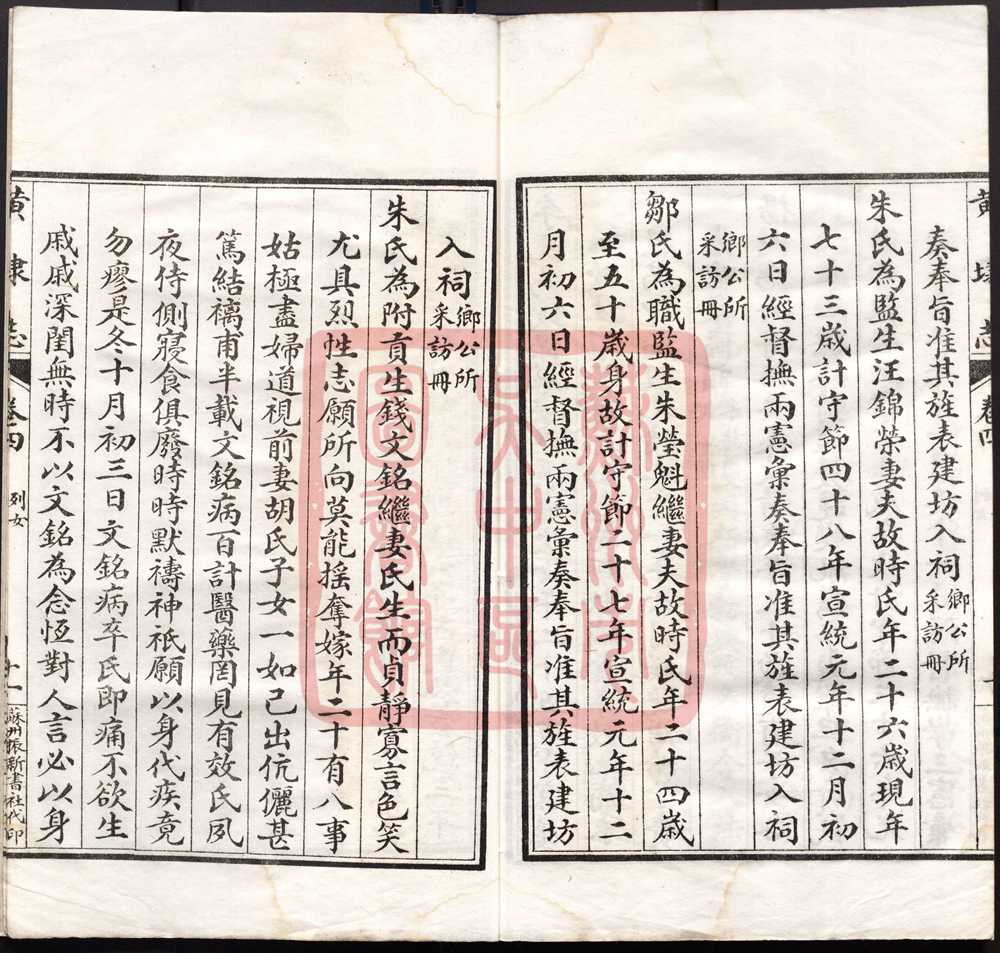 黃埭志
卷四
奏奉旨准其旌表建坊入祠鄉公所采訪冊
朱氏為監生汪錦榮妻夫故時氏年二十六歲現年
七十三歲計守節四十八年宣統元年十二月初
六日經督撫兩憲彙奏奉旨准其旌表建坊入祠
鄉公所采訪冊
鄒氏為職監生朱瑩魁繼妻夫故時氏年二十四歲
至五十歲身故計守節二十七年宣統元年十二
月初六日經督撫兩憲彙奏奉旨准其旌表建坊
入祠鄉公所采訪冊
朱氏為附貢生錢文銘繼妻氏生而貞靜寡言色笑
尤具烈性志願所向莫能搖奪嫁年二十有八事
姑極盡婦道視前妻胡氏子女一如己出伉儷甚
篤結褵甫半載文銘病百計醫藥罔見有效氏夙
夜侍側寢食俱廢時時默禱神祇願以身代疾竟
勿瘳是冬十月初三日文銘病卒氏即痛不欲生
戚戚深閨無時不以文銘為念恆對人言必以身
黃埭志
卷四
列女
十一
蘇州振新書社代印